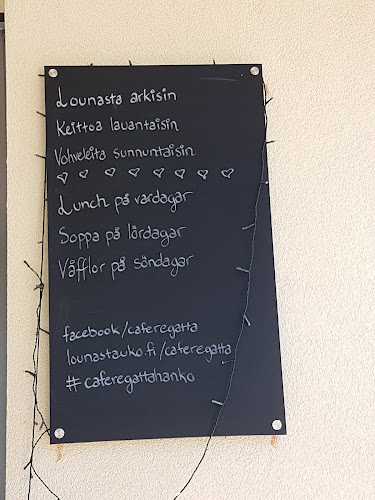 Lounasta arkisin
Keittoa lauantaisin
Vohveleita sunnuntaisin
Lunch på vardagar
Soppa på lördagar
Våfflor på söndagar
facebook/caferegatta
lounastauko.fi/caferegatta
#caferegattahanko